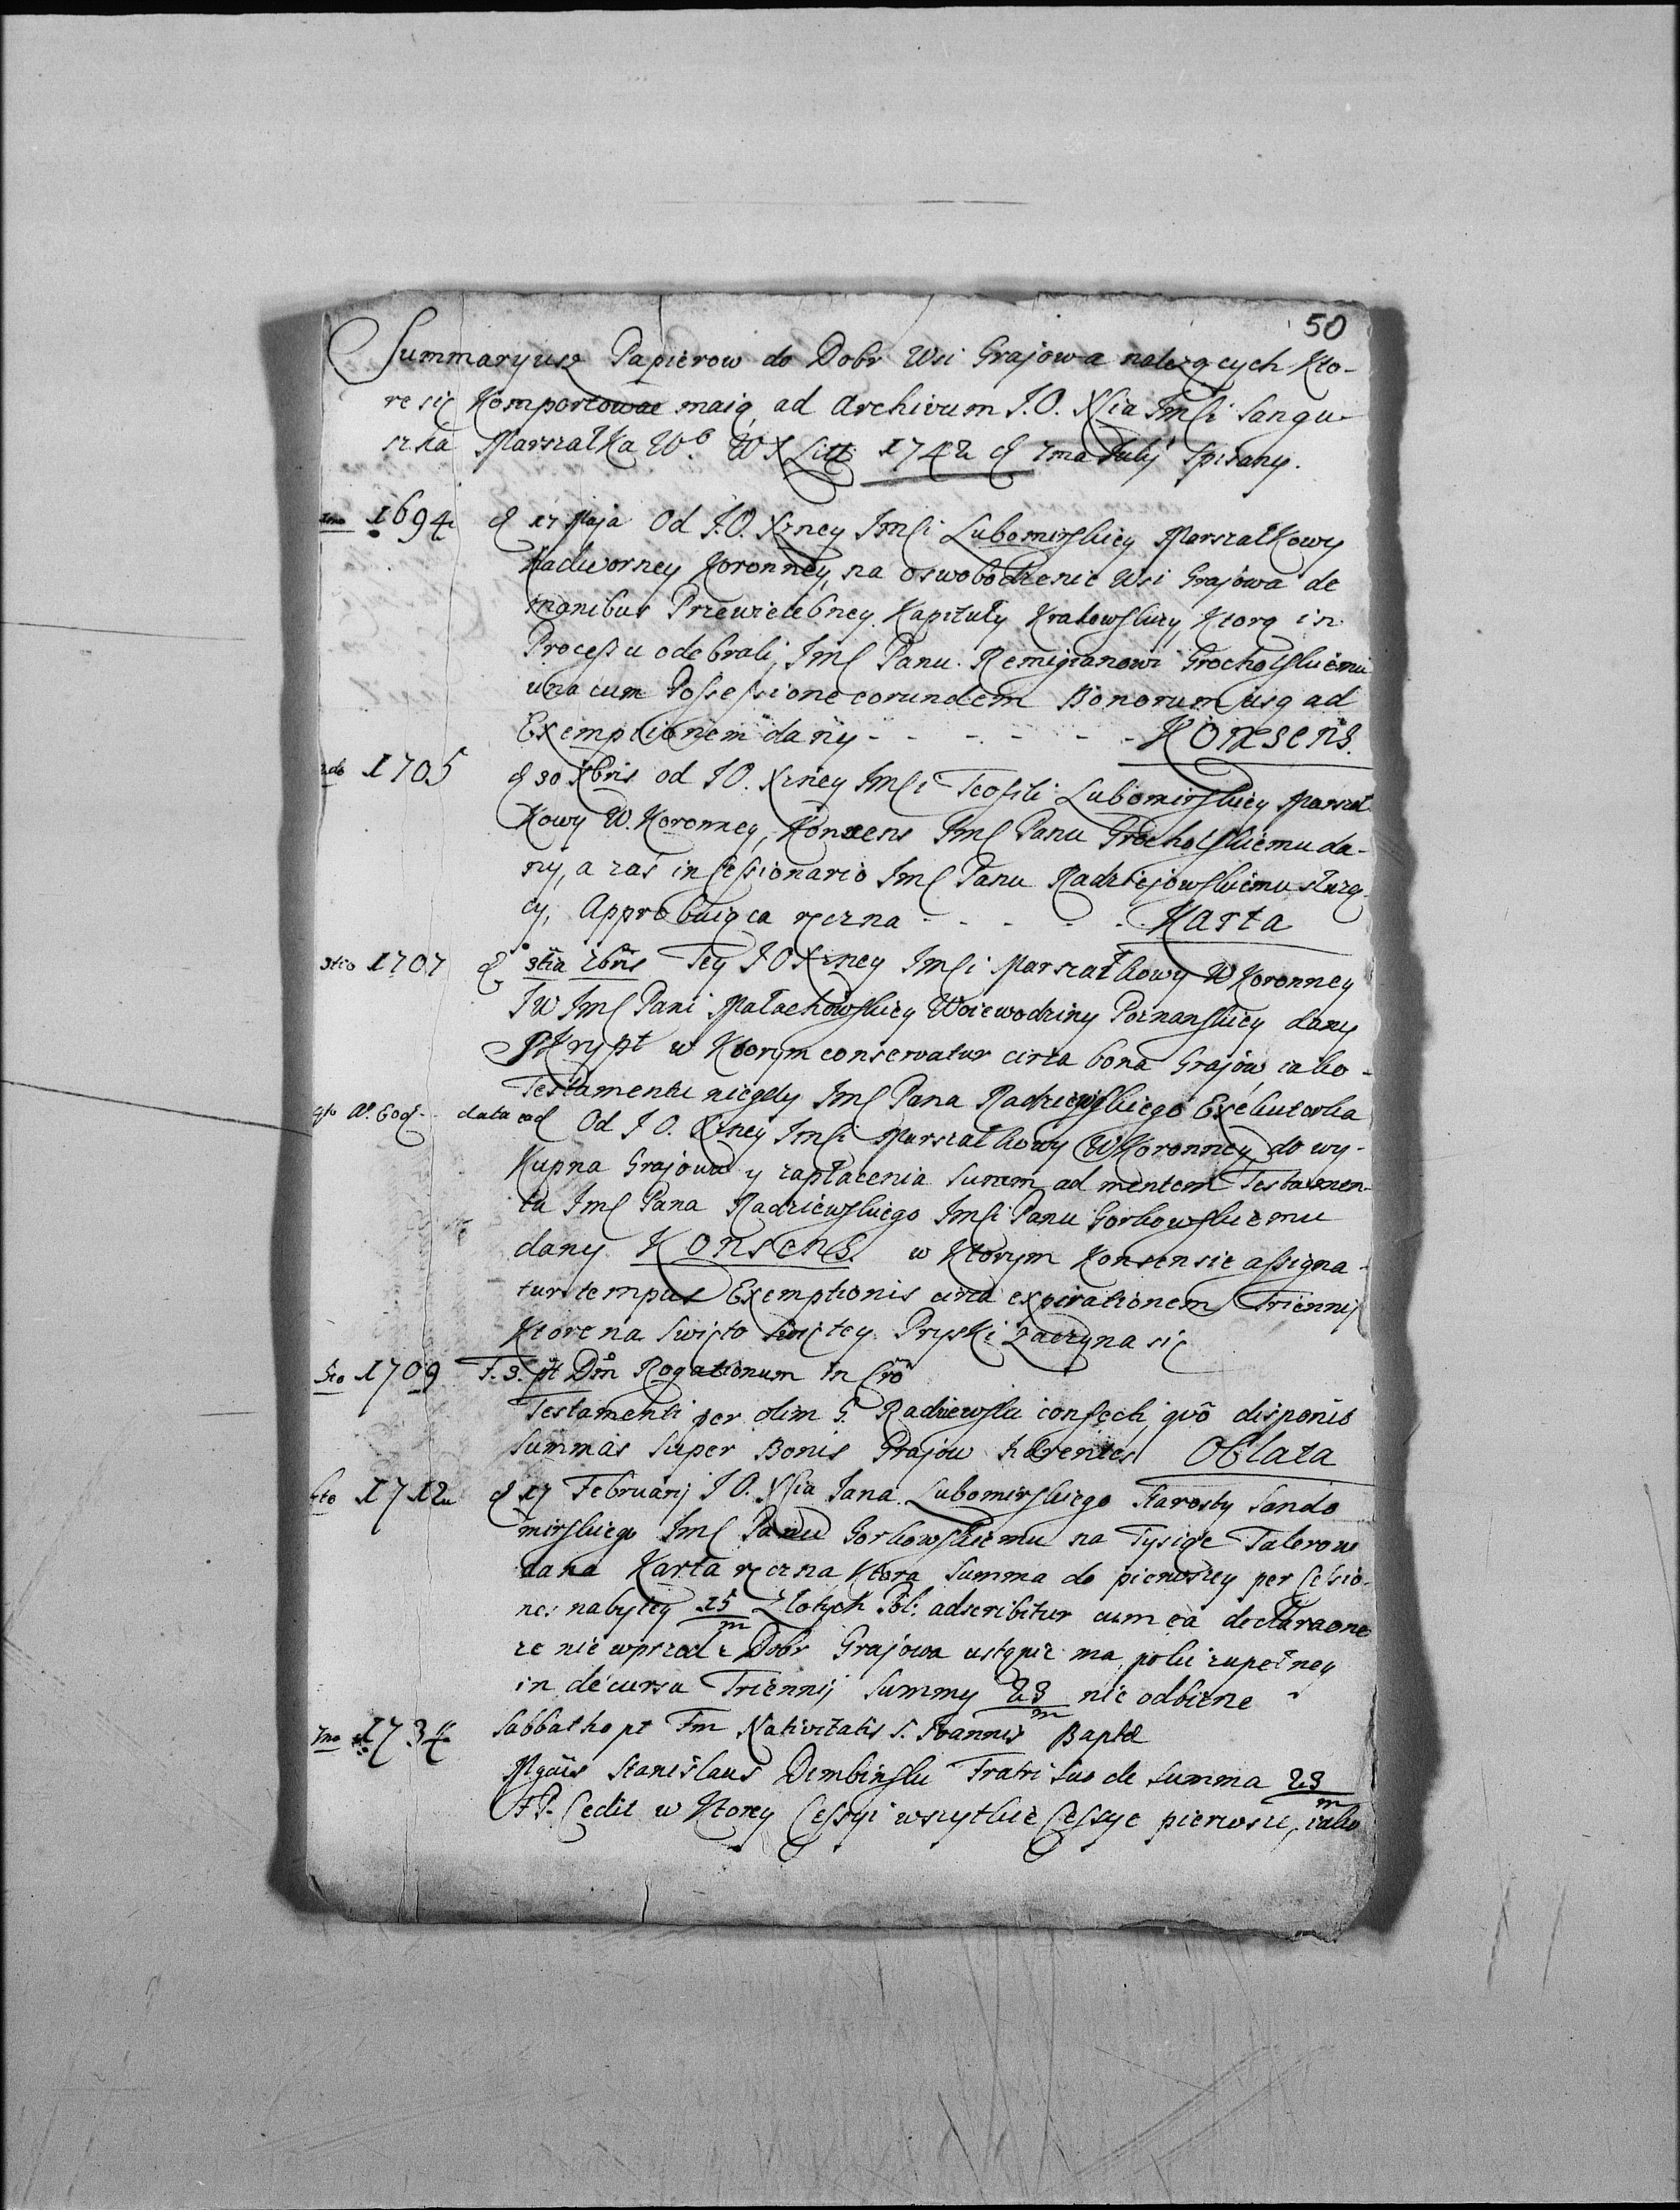 50
Summaryusz Papierow do Dobr Wsi Grajowa nalezących Kto-
re się Komportowac maią ad Archivum J.O. Xcia Jmći Sangu-
szka Marszałka Wo WX Litt: 1742 d 7ma Julij Spisany.
1mo 1694 d 17 Maja Od J.O. Xzney Jmći Lubomirskiey Marszałkowy
Nadworney Koronney, na oswobodzenie Wsi Grajowa de
manibus Przewielebney Kapituły Krakowskiey, Ktorą in
Processu odebrali, Jmć Panu Remigianowi Grocholskiemu
una cum Possessione eorundem Bonorum usq ad
Exemptionem dany - - - - - - Konsens.
2do 1705 d 30 Xbris od J O. Xzney Jmći Teofili Lubomirskiey Marszał
Kowy W. Koronney, Konsens Jmć Panu Grocholskiemu da-
ny, a zas in Cessionario Jmć Panu Radziejowskiemu słuzą-
cy, Approbuiąca ręczna - - - - - Karta
3tio 1707 d 3tia Tey J O Xzney Jmći Marszałkowy W Koronney
JW Jmć Pani Małachowskiey Woiewodziny Poznanskiey dany
Skrypt w Ktorym conservatur circa bona Grajow, iako
Testamentu niegdy Jmć Pana Radziejowskiego Exekutorka
4to Ao. Eod. data ead Od J O. Xzney Jmći Marszałkowy W Koronney do wy-
Kupna Grajowa y zapłacenia Summ ad mentem Testamen-
tu Jmć Pana Radziewskiego Jmći Panu Gorkowskiemu
dany Konsens. w Ktorym Konsensie assigna-
tur tempus Exemptionis circa expirationem Triennij
Ktore na Swięto Swiętey Pryski Zaczyna się
5to 1709 F. 3. pt Dm Rogationum in Cro
Testamenti per olim G. Radziewski confecti, quo disponit
Summas Super Bonis Grajow haerentes Oblata
6to 1712 d 17 Februarij J O. Xcia Jana Lubomirskiego Starosty Sando
mirskiego Jmć Panu Gorkowskiemu na Tysiąc Talerow
dana Karta ręczna Ktora Summa do pierwszey per Cessio
nes nabytey 15/m Złotych Pol: adscribitur cum ea declaraone
ze nie wprzod z Dobr Grajowa ustąpic ma, poki zupełney
in decursu Triennij Summy 23/m nie odbierze
7mo 1734 Sabbatho pt Fm Nativitatis S. Joannis Baptae
Mgcus Stanislaus Dembinski Fratri Suo de Summa 23/m
F P. Cedit w Ktorey Cessyi wszytkie Cessye pierwsze, iako